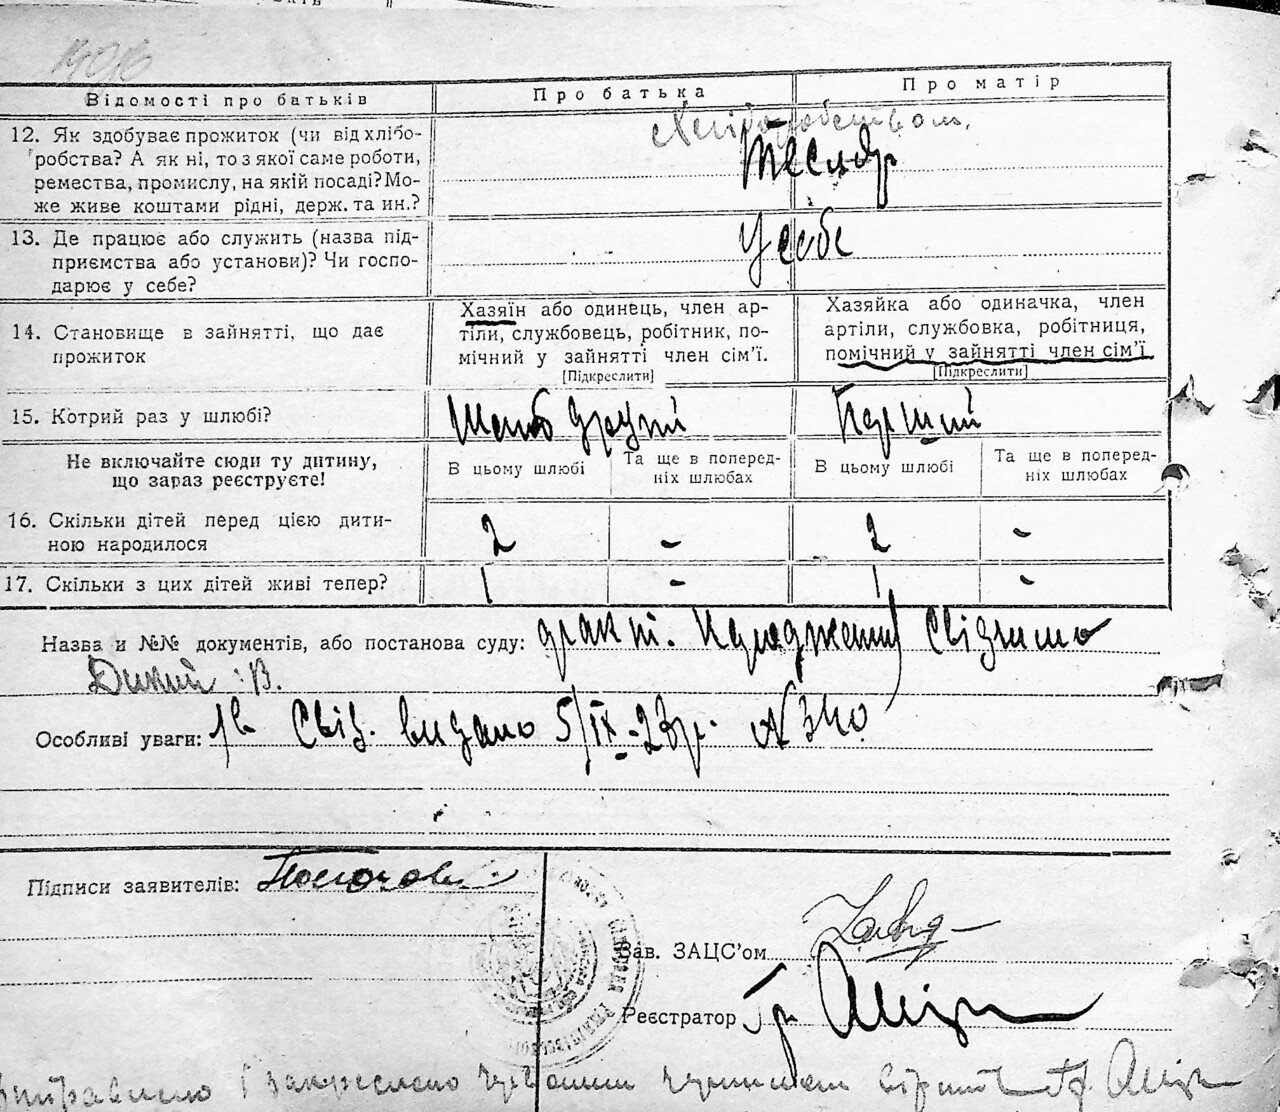 Відомості про батьків
Про батька
Про матір
12. Як здобуває прожиток (чи від хлібо-
робства? А як ні, то з якої саме роботи,
ремества, промислу, на якій посаді? Мо-
же живе коштами рідні, держ. та ин.?
Хліборобством,
Тесляр
13. Де працює або служить (назва під-
приємства або установи)? Чи госпо-
дарює у себе?
У себе
14. Становище в зайнятті, що дає
прожиток
Хазяїн або одинець, член ар-
тіли, службовець, робітник, по-
мічний у зайнятті член сім'ї.
[Підкреслити]
Хазяйка або одиначка, член
артіли, службовка, робітниця,
помічний у зайнятті член сім'ї
[Підкреслити]
15. Котрий раз у шлюбі?
другий
Перший
Не включайте сюди ту дитину,
що зараз реєструєте!
В цьому шлюбі
Та ще в поперед-
ніх шлюбах
В цьому шлюбі
Та ще в поперед-
ніх шлюбах
16. Скільки дітей перед цією дити-
ною народилося
2
-
2
-
17. Скільки з цих дітей живі тепер?
1
-
1
-
Назва и №№ документів, або постанова суду:
Дикий В.
Особливі уваги: Свід. видано 5/IX-23р. №340
Підписи заявителів:
Зав. ЗАЦС'ом
Реєстратор Гр
і закреслено червоним чорнилом